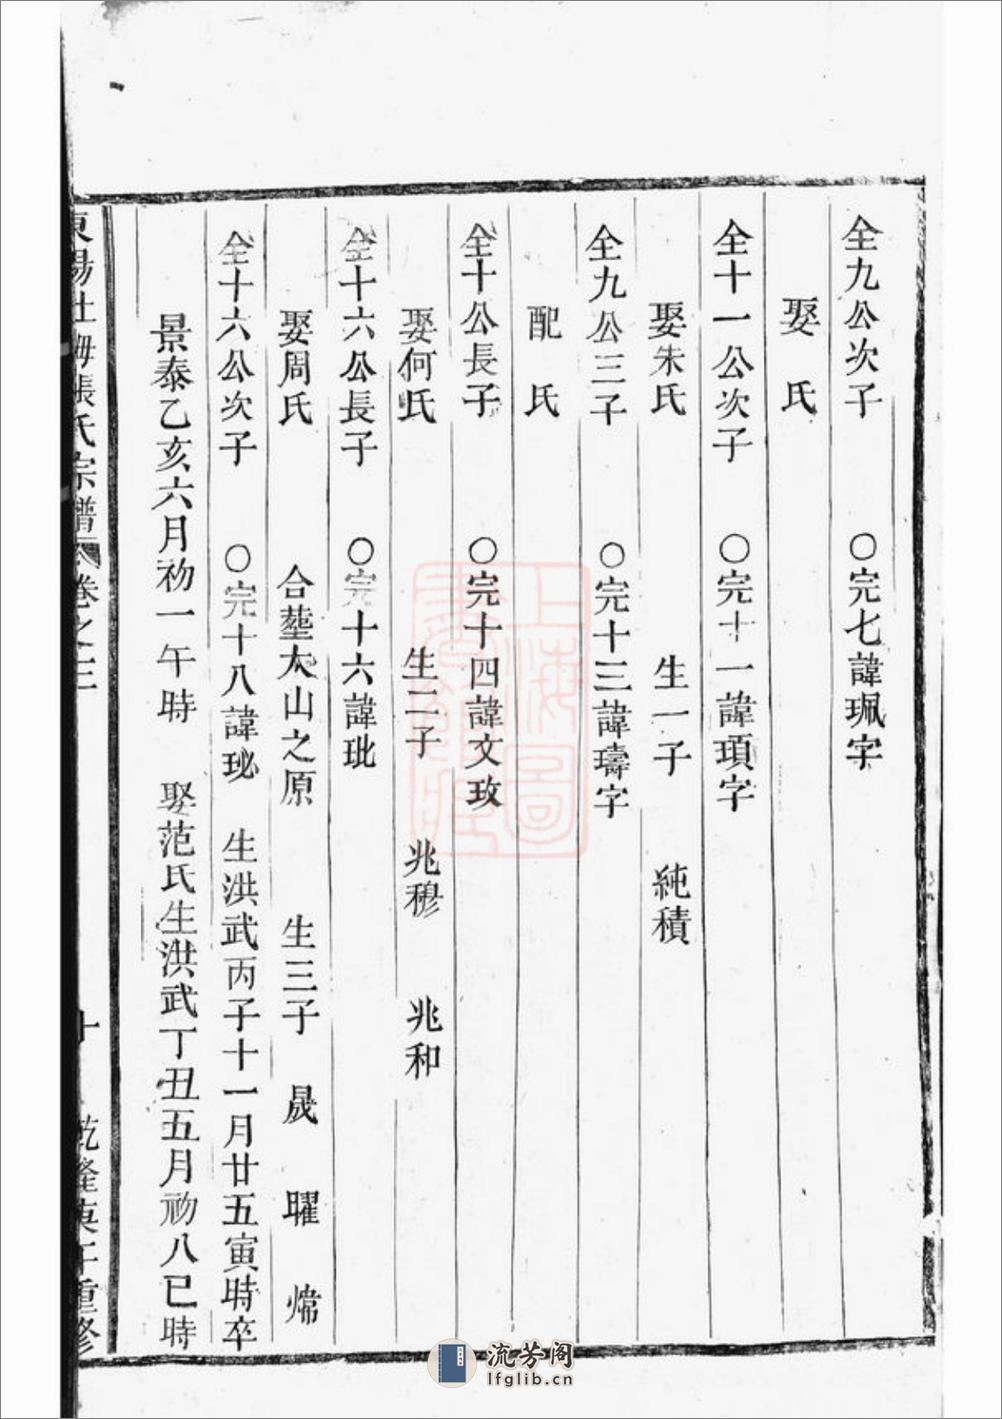 全九公次子　○完七諱珮字
娶　氏
全十一公次子　○完十一諱頊字
娶朱氏　生一子　純積
全九公三子　○完十三諱璹字
配　氏
全十公長子　○完十四諱文玫
娶何氏　生二子　兆穆　兆和
全十六公長子　○完十六諱玭
娶周氏　合塟大山之原　生三子　晟　曜　煒
全十六公次子　○完十八諱珌　生洪武丙子十一月廿五寅時卒
景泰乙亥六月初一午時　娶范氏生洪武丁丑五月初八巳時
東陽　張氏宗譜　卷之三　十　乾隆　午重修
上海圖書館藏
流芳阁
lfglib.cn